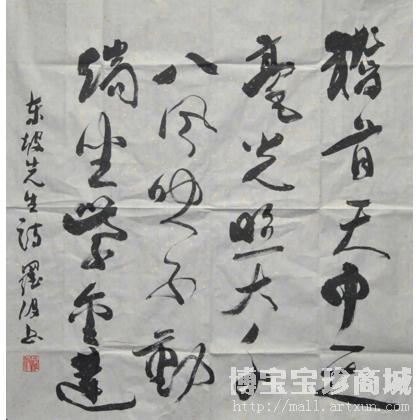 稽首天中天
毫光照大千
八风吹不動
端坐紫金蓮
东坡先生诗 书
博宝宝珍商城
http://mall.artxun.com